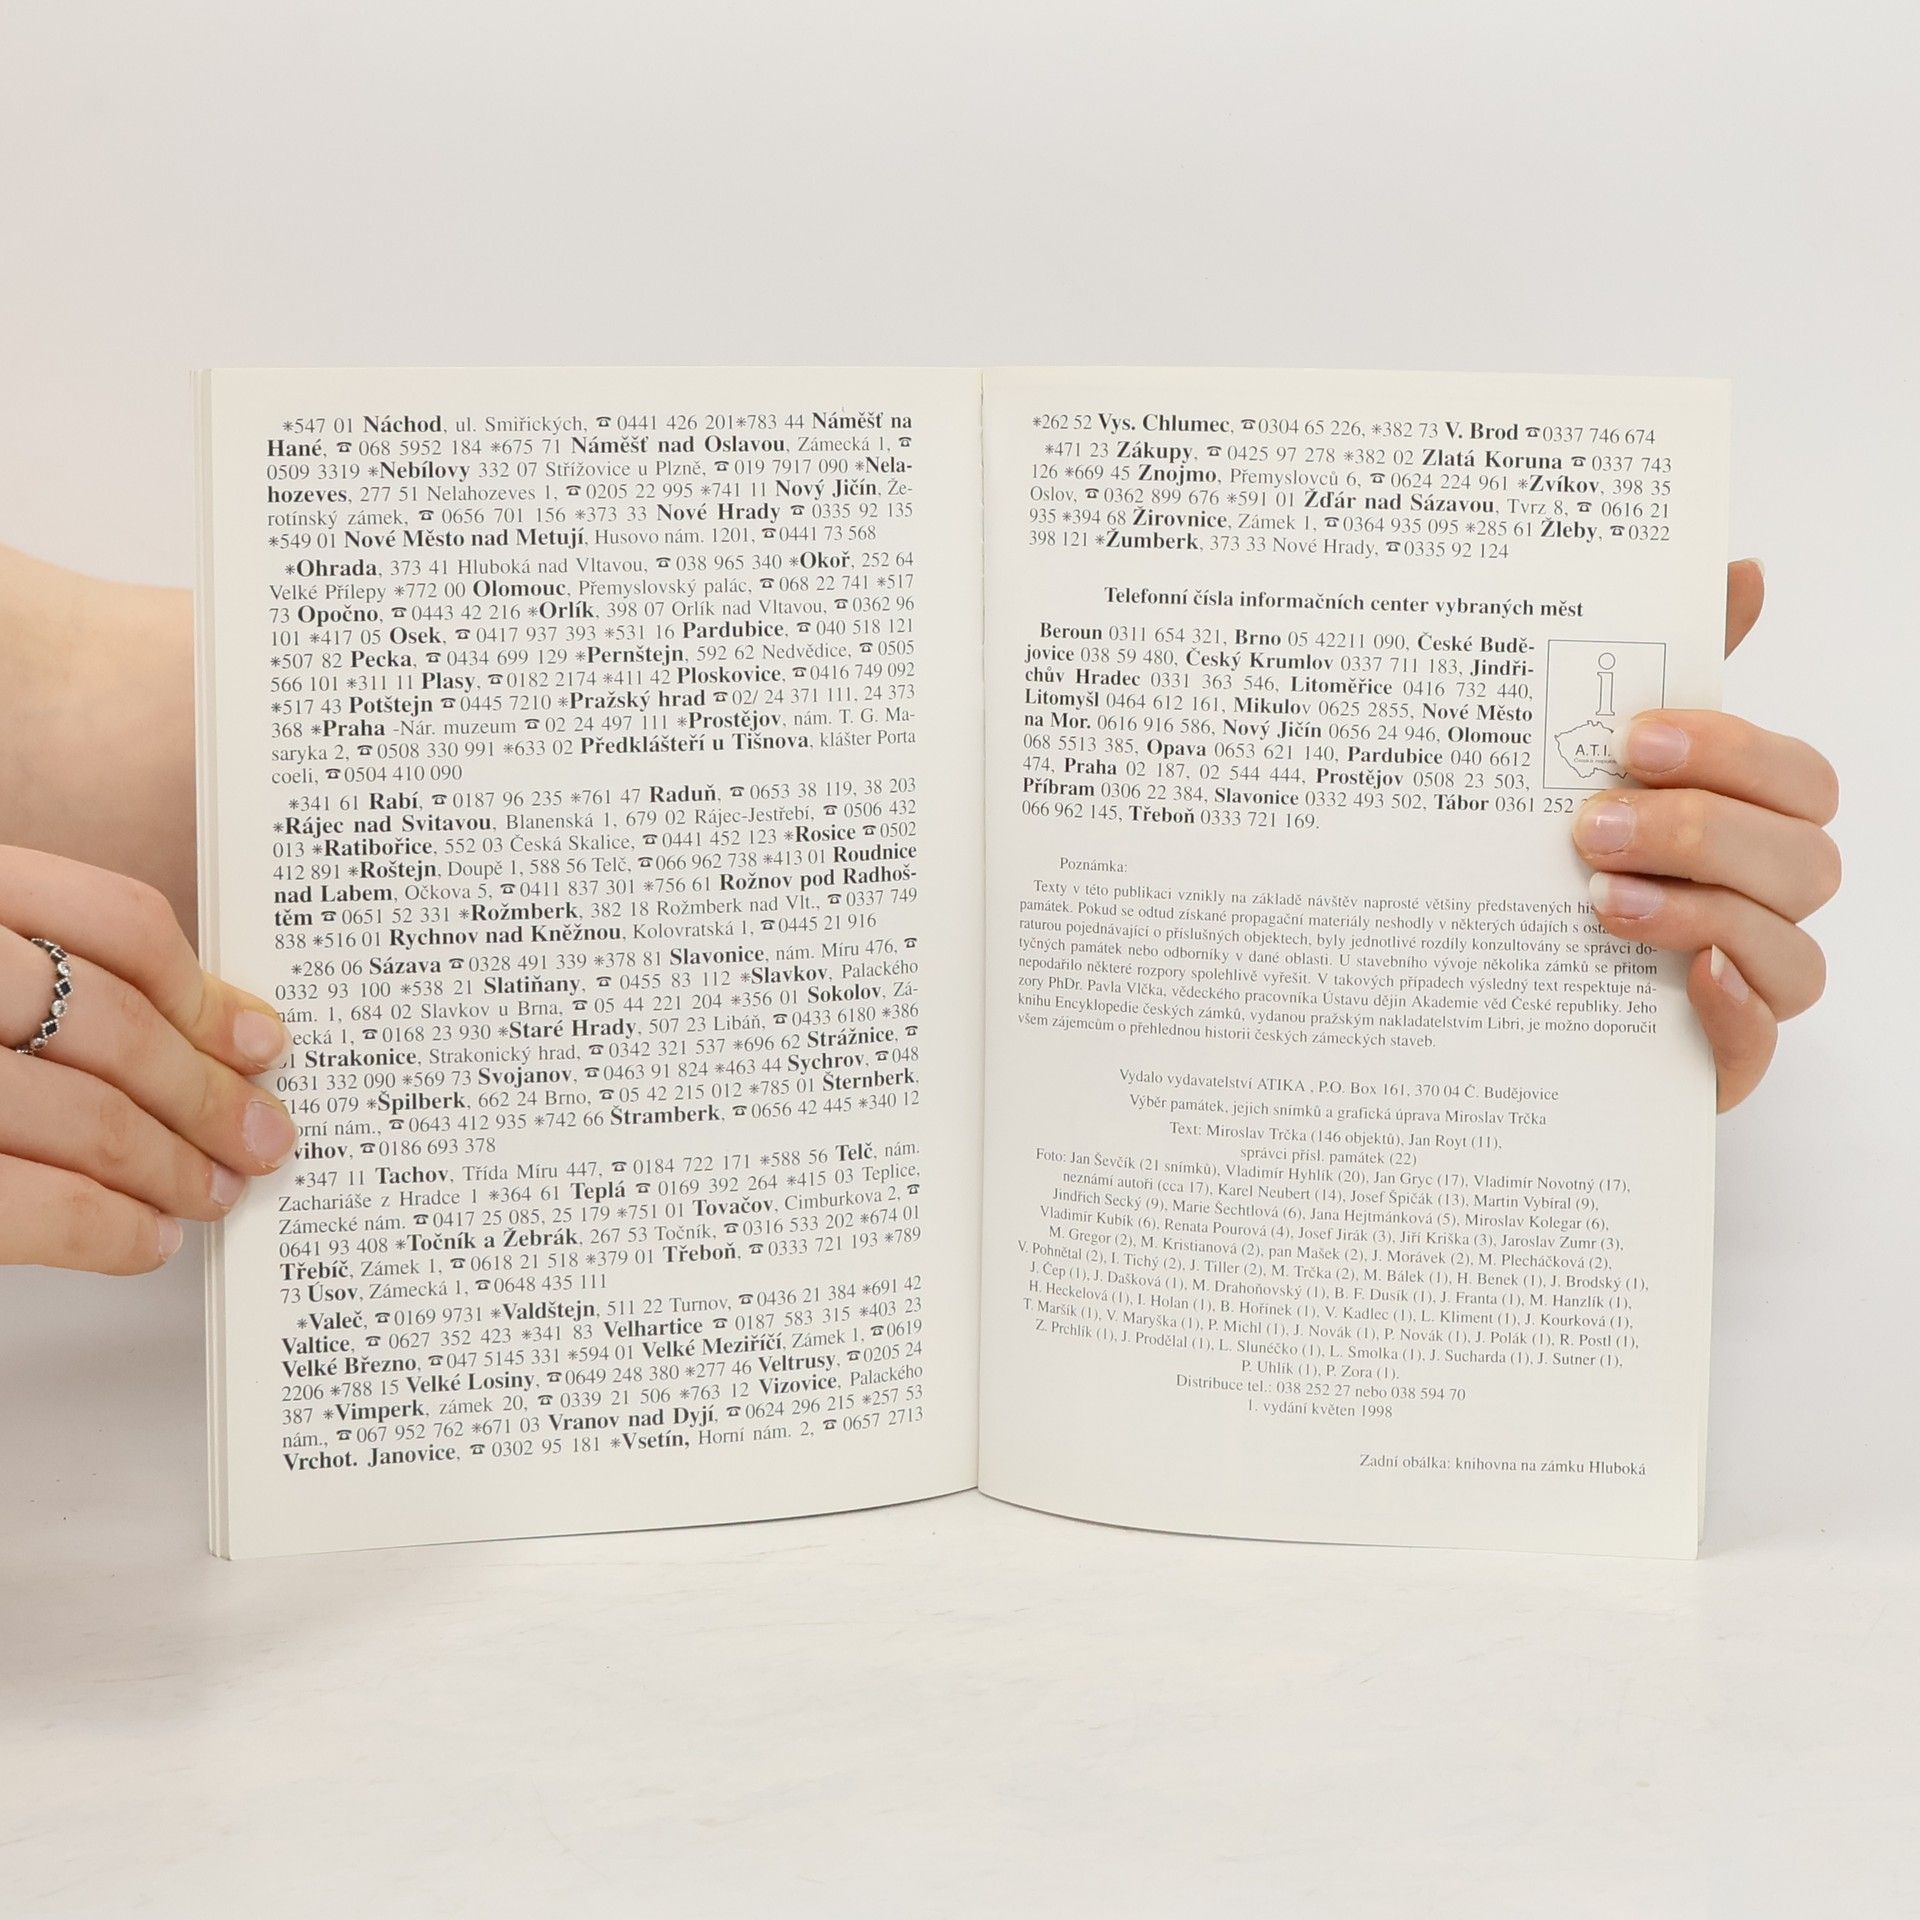 *547 01 Náchod, ul. Smiřických, ☎ 0441 426 201*783 44 Náměšť na
Hané, ☎ 068 5952 184 *675 71 Náměšť nad Oslavou, Zámecká 1, ☎
0509 3319 *Nebílovy 332 07 Střížovice u Plzně, ☎ 019 7917 090 *Nela-
hozeves, 277 51 Nelahozeves 1, ☎ 0205 22 995 *741 11 Nový Jičín, Že-
rotínský zámek, ☎ 0656 701 156 *373 33 Nové Hrady ☎ 0335 92 135
*549 01 Nové Město nad Metují, Husovo nám. 1201, ☎ 0441 73 568
*Ohrada, 373 41 Hluboká nad Vltavou, ☎ 038 965 340 *Okoř, 252 64
Velké Přílepy *772 00 Olomouc, Přemyslovský palác, ☎ 068 22 741 *517
73 Opočno, ☎ 0443 42 216 *Orlík, 398 07 Orlík nad Vltavou, ☎ 0362 96
101 *417 05 Osek, ☎ 0417 937 393 *531 16 Pardubice, ☎ 040 518 121
*507 82 Pecka, ☎ 0434 699 129 *Pernštejn, 592 62 Nedvědice, ☎ 0505
566 101 *311 11 Plasy, ☎ 0182 2174 *411 42 Ploskovice, ☎ 0416 749 092
*517 43 Potštejn ☎ 0445 7210 *Pražský hrad ☎ 02/ 24 371 111, 24 373
368 *Praha -Nár. muzeum ☎ 02 24 497 111 *Prostějov, nám. T. G. Ma-
saryka 2, ☎ 0508 330 991 *633 02 Předklášteří u Tišnova, klášter Porta
coeli, ☎ 0504 410 090
*341 61 Rabí, ☎ 0187 96 235 *761 47 Raduň, ☎ 0653 38 119, 38 203
*Rájec nad Svitavou, Blanenská 1, 679 02 Rájec-Jestřebí, ☎ 0506 432
013 *Ratibořice, 552 03 Česká Skalice, ☎ 0441 452 123 *Rosice ☎ 0502
412 891 *Roštejn, Doupě 1, 588 56 Telč, ☎ 066 962 738 *413 01 Roudnice
nad Labem, Očkova 5, ☎ 0411 837 301 *756 61 Rožnov pod Radhoš-
těm ☎ 0651 52 331 *Rožmberk, 382 18 Rožmberk nad Vlt., ☎ 0337 749
838 *516 01 Rychnov nad Kněžnou, Kolovratská 1, ☎ 0445 21 916
*286 06 Sázava ☎ 0328 491 339 *378 81 Slavonice, nám. Míru 476, ☎
0332 93 100 *538 21 Slatiňany, ☎ 0455 83 112 *Slavkov, Palackého
nám. 1, 684 02 Slavkov u Brna, ☎ 05 44 221 204 *356 01 Sokolov, Zá-
ecká 1, ☎ 0168 23 930 *Staré Hrady, 507 23 Libáň, ☎ 0433 6180 *386
01 Strakonice, Strakonický hrad, ☎ 0342 321 537 *696 62 Strážnice, ☎
0631 332 090 *569 73 Svojanov, ☎ 0463 91 824 *463 44 Sychrov, ☎ 048
5146 079 *Špilberk, 662 24 Brno, ☎ 05 42 215 012 *785 01 Šternberk,
orní nám., ☎ 0643 412 935 *742 66 Štramberk, ☎ 0656 42 445 *340 12
vihov, ☎ 0186 693 378
*347 11 Tachov, Třída Míru 447, ☎ 0184 722 171 *588 56 Telč, nám.
Zachariáše z Hradce 1 *364 61 Teplá ☎ 0169 392 264 *415 03 Teplice,
Zámecké nám. ☎ 0417 25 085, 25 179 *751 01 Tovačov, Cimburkova 2, ☎
0641 93 408 *Točník a Žebrák, 267 53 Točník, ☎ 0316 533 202 *674 01
Třebíč, Zámek 1, ☎ 0618 21 518 *379 01 Třeboň, ☎ 0333 721 193 *789
73 Úsov, Zámecká 1, ☎ 0648 435 111
*Valeč, ☎ 0169 9731 *Valdštejn, 511 22 Turnov, ☎ 0436 21 384 *691 42
Valtice, ☎ 0627 352 423 *341 83 Velhartice ☎ 0187 583 315 *403 23
Velké Březno, ☎ 047 5145 331 *594 01 Velké Meziříčí, Zámek 1, ☎ 0619
2206 *788 15 Velké Losiny, ☎ 0649 248 380 *277 46 Veltrusy, ☎ 0205 24
387 *Vimperk, zámek 20, ☎ 0339 21 506 *763 12 Vizovice, Palackého
nám., ☎ 067 952 762 *671 03 Vranov nad Dyjí, ☎ 0624 296 215 *257 53
Vrchot. Janovice, ☎ 0302 95 181 *Vsetín, Horní nám. 2, ☎ 0657 2713
*262 52 Vys. Chlumec, ☎ 0304 65 226, *382 73 V. Brod ☎ 0337 746 674
*471 23 Zákupy, ☎ 0425 97 278 *382 02 Zlatá Koruna ☎ 0337 743
126 *669 45 Znojmo, Přemyslovců 6, ☎ 0624 224 961 *Zvíkov, 398 35
Oslov, ☎ 0362 899 676 *591 01 Žďár nad Sázavou, Tvrz 8, ☎ 0616 21
935 *394 68 Žirovnice, Zámek 1, ☎ 0364 935 095 *285 61 Žleby, ☎ 0322
398 121 *Žumberk, 373 33 Nové Hrady, ☎ 0335 92 124
Telefonní čísla informačních center vybraných měst
Beroun 0311 654 321, Brno 05 42211 090, České Budě-
jovice 038 59 480, Český Krumlov 0337 711 183, Jindři-
chův Hradec 0331 363 546, Litoměřice 0416 732 440,
Litomyšl 0464 612 161, Mikulov 0625 2855, Nové Město
na Mor. 0616 916 586, Nový Jičín 0656 24 946, Olomouc
068 5513 385, Opava 0653 621 140, Pardubice 040 6612
474, Praha 02 187, 02 544 444, Prostějov 0508 23 503,
Příbram 0306 22 384, Slavonice 0332 493 502, Tábor 0361 252
066 962 145, Třeboň 0333 721 169.
i
A.T.I.
Poznámka:
Texty v této publikaci vznikly na základě návštěv naprosté většiny představených
památek. Pokud se odtud získané propagační materiály neshodly v některých údajích s
raturou pojednávající o příslušných objektech, byly jednotlivé rozdíly konzultovány se správci do-
tyčných památek nebo odborníky v dané oblasti. U stavebního vývoje několika zámků se přitom
nepodařilo některé rozpory spolehlivě vyřešit. V takových případech výsledný text respektuje ná-
zory PhDr. Pavla Vlčka, vědeckého pracovníka Ústavu dějin Akademie věd České republiky. Jeho
knihu Encyklopedie českých zámků, vydanou pražským nakladatelstvím Libri, je možno doporučit
všem zájemcům o přehlednou historii českých zámeckých staveb.
Vydalo vydavatelství ATIKA , P.O. Box 161, 370 04 Č. Budějovice
Výběr památek, jejich snímků a grafická úprava Miroslav Trčka
Text: Miroslav Trčka (146 objektů), Jan Royt (11),
správci přísl. památek (22)
Foto: Jan Ševčík (21 snímků), Vladimír Hyhlík (20), Jan Gryc (17), Vladimír Novotný (17),
neznámí autoři (cca 17), Karel Neubert (14), Josef Špičák (13), Martin Vybíral (9),
Jindřich Secký (9), Marie Šechtlová (6), Jana Hejtmánková (5), Miroslav Kolegar (6),
Vladimír Kubík (6), Renata Pourová (4), Josef Jirák (3), Jiří Kriška (3), Jaroslav Zumr (3),
M. Gregor (2), M. Kristianová (2), pan Mašek (2), J. Morávek (2), M. Plecháčková (2),
V. Pohnětal (2), I. Tichý (2), J. Tiller (2), M. Trčka (2), M. Bálek (1), H. Benek (1), J. Brodský (1),
J. Čep (1), J. Dašková (1), M. Drahoňovský (1), B. F. Dusík (1), J. Franta (1), M. Hanzlík (1),
H. Heckelová (1), I. Holan (1), B. Hořínek (1), V. Kadlec (1), L. Kliment (1), J. Kourková (1),
T. Maršík (1), V. Maryška (1), P. Michl (1), J. Novák (1), P. Novák (1), J. Polák (1), R. Postl (1),
Z. Prchlík (1), J. Prodělal (1), L. Slunéčko (1), L. Smolka (1), J. Sucharda (1), J. Sutner (1),
P. Uhlík (1), P. Zora (1).
Distribuce tel.: 038 252 27 nebo 038 594 70
1. vydání květen 1998
Zadní obálka: knihovna na zámku Hluboká